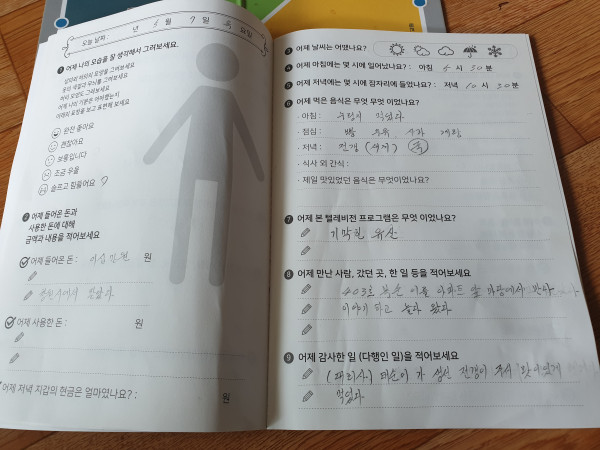 오늘 날짜 : 년 6 월 7 일 목 요일
1 어제 나의 모습을 잘 생각해서 그려보세요.
상의와 하의의 모양을 그려보세요
옷의 색깔과 무늬를 그려보세요
머리 모양도 그려보세요
어제 나의 기분은 어떠했는지
아래의 표정을 보고 표현해 보세요
완전 좋아요
괜찮아요
보통입니다
조금 우울
슬프고 힘들어요
2 어제 들어온 돈과
사용한 돈에 대해
금액과 내용을 적어보세요
어제 들어온 돈 : 이십 만 원
받았다
어제 사용한 돈 : 원
어제 저녁 지갑의 현금은 얼마였나요? : 원
3 어제 날씨는 어땠나요?
4 어제 아침에는 몇 시에 일어났나요? : 아침 6 시 30 분
5 어제 저녁에는 몇 시에 잠자리에 들었나요? : 저녁 10 시 30 분
6 어제 먹은 음식은 무엇 무엇 이었나요?
· 아침 : 먹었다
· 점심 : 빵 우유 사과 계란
· 저녁 : 전갱이 (죽)
· 식사 외 간식 :
· 제일 맛있었던 음식은 무엇이었나요?
7 어제 본 텔레비전 프로그램은 무엇 이었나요?
기막힌 유산
8 어제 만난 사람, 갔던 곳, 한 일 등을 적어보세요
403호 아파트 앞 마당에서 만나
이야기 하고 놀다 왔다
9 어제 감사한 일 (다행인 일)을 적어보세요
생선 전갱이 주서 맛이있게
먹었다